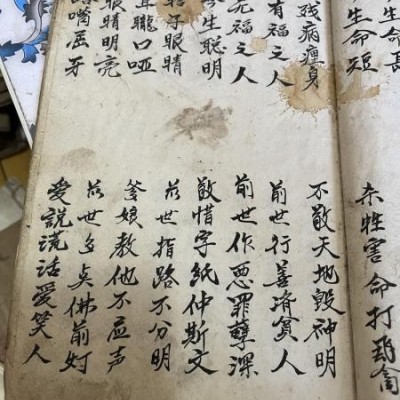 生命長
生命短
杀牲害命打野禽
残病瘦身
不敬天地毁神明
有福之人
前世行善济貧人
无福之人
前世作恶罪孽深
生聪明
敬惜字紙仲斯文
子眼睛
前世指路不分明
耳聋口哑
爹娘教他不应声
眼睛明亮
前世多点佛前灯
嘴屈牙
爱説谎话爱笑人